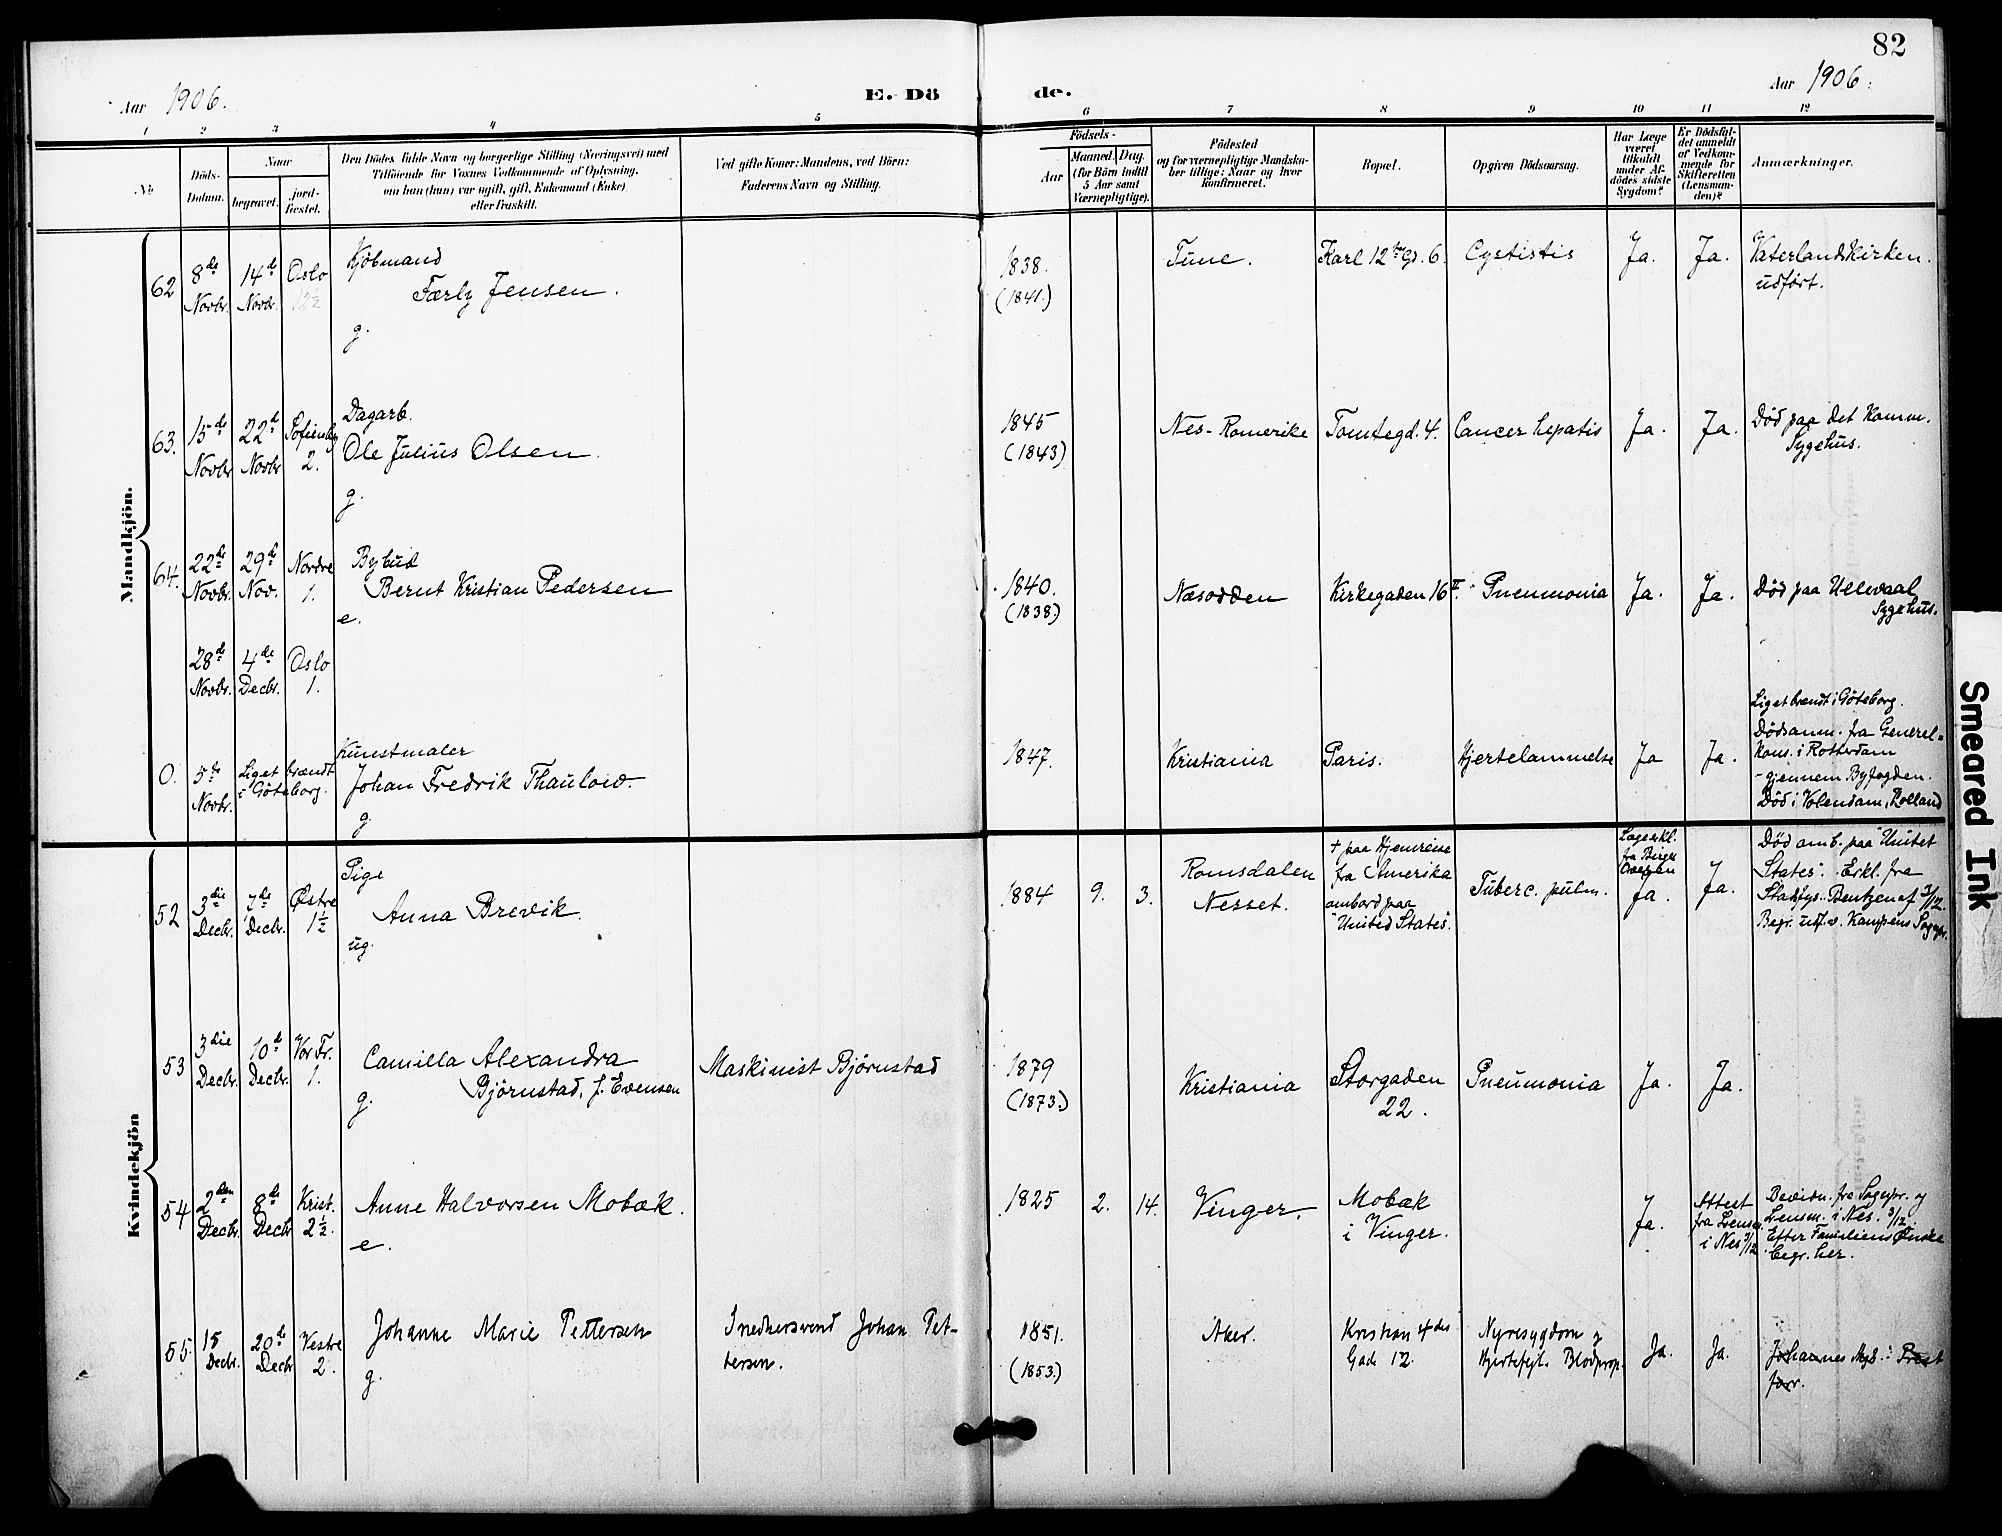 82
Aar 1906.
E. Dö
de.
Aar 1906.
1 2 3 4 5 6 7 8 9 10 11 12
No
Döds-
Datum.
Naar
begravet.
jord-
fæstet.
Den Dödes fulde Navn og borgerlige Stilling (Næringsvei) med
Tilföiende for Voxnes Vedkommende af Oplysning,
om han (hun) var ugift, gift, Enkemand (Enke)
eller fraskilt.
Ved gifte Koner: Mandens, ved Börn:
Faderens Navn og Stilling.
Födsels-
Aar
Maaned. Dag.
(for Börn indtil
5 Aar samt
Værnepligtige).
Födested
og for værnepligtige Mandska-
ber tillige: Naar og hvor
konfirmeret.
Bopæl.
Opgiven Dödsaarsag.
Har Læge
været
tilkaldt
under Af-
dödes sidste
Sygdom?
Er Dödsfal-
det anmeldt
af Vedkom-
mende for
Skifteretten
(Lensman-
den)?
Anmærkninger.
Mandkjön.
62
8de
Novbr.
14de
Novbr.
Oslo
12½
Kjöbmand
Færly Jensen.
g.
1838.
(1841.)
Tune.
Karl 12tes Gd. 6.
Cystistis
Ja.
Ja.
Vaterlandskirken.
udført.
63.
15de
Novbr
22de
Novbr
Sofienbg
2.
Dagarb.
Ole Julius Olsen.
g.
1845
(1843)
Nes-Romerike
Tomtegd. 4.
Cancer hepatis
Ja.
Ja.
Död paa det Komm.
Sygehus.
64.
22de
Novbr.
29de
Nov.
Nordre
1.
Bybud
Bernt Kristian Pedersen
e.
1840.
(1838.)
Næsodden
Kirkegaden 16 II.
Pneumonia
Ja.
Ja.
Död paa Ullevaal
Sygehus.
28de
Novbr.
4de
Decbr.
Oslo
1.
0.
5te
Novbr.
Liget brændt
i Göteborg.
Kunstmaler
Johan Fredrik Thaulow.
g.
1847.
Kristiania
Paris.
Hjertelammelse
Ja
Ja.
Liget brændt i Göteborg.
Dödsanm. fra General-
kons. i Rotterdam
- gjennem Byfogden.
Död i Volendam, Holland
Kvindekjön
52
3die
Decbr.
7de
Decbr.
Østre
1½
Pige
Anna Brevik.
ug.
1884
9.
3.
Romsdalen
Nesset.
+ paa Hjemreise
fra Amerika
ombord paa
"United States".
Tuberc. pulm.
Lægeerkl.
fra Birger
Ja.
Ja.
Död omb. paa "United
States". Erkl. fra
Bentzen af 3/12.
Begr. udf. v. Kampens Sogepr.
53
3die
Decbr.
10de
Decbr.
Vor Fr.
1.
Camilla Alexandra
Björnstad, f. Evensen
g.
Maskinist Björnstad
1879
(1873.)
Kristiania
Storgaden
22.
Pneumonia
Ja.
Ja.
54
2den
Decbr.
8de
Decbr
Krist.
2½.
Anne Halvorsen Mobæk.
e.
1825
2.
14.
Vinger.
Mobæk
i Vinger.
Ja.
Attest
fra Lensm.
i Nes 3/12
Bevidn. fra Sogepr. og
Lensm. i Nes. 3/12.
Efter Familiens Ønske
begr. her.
55.
15
Decbr.
20de
Decbr
Vestre
2.
Johanne Marie Pettersen
g.
Snedkersvend Johan Pet-
tersen.
1851.
(1853.)
Aker.
Kristian 4des
Gade 12.
Nyresygdom og
Hjertefejl. Blodprop.
Ja.
Ja.
Johannes
Smeared Ink